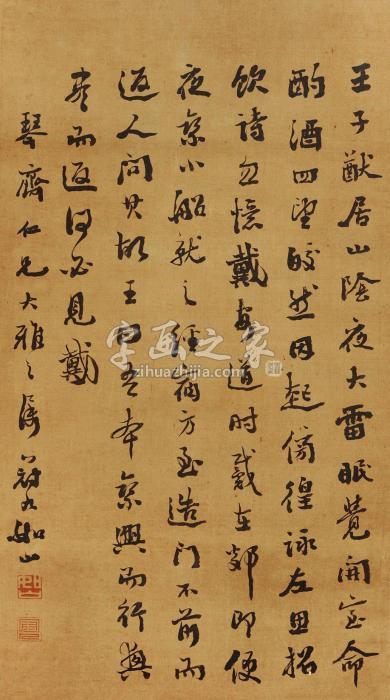 王子猷居山陰夜大雪眠覺開室命
酌酒四望皎然因起徬徨詠左思招
飲詩忽憶戴安道時戴在郯即便
夜乘小船就之經宿方至造門不前而
返人問其故王曰吾本乘興而行興
盡而返何必見戴
琴齋仁兄大雅之属
如山
字画之家
zihuazhijia.com